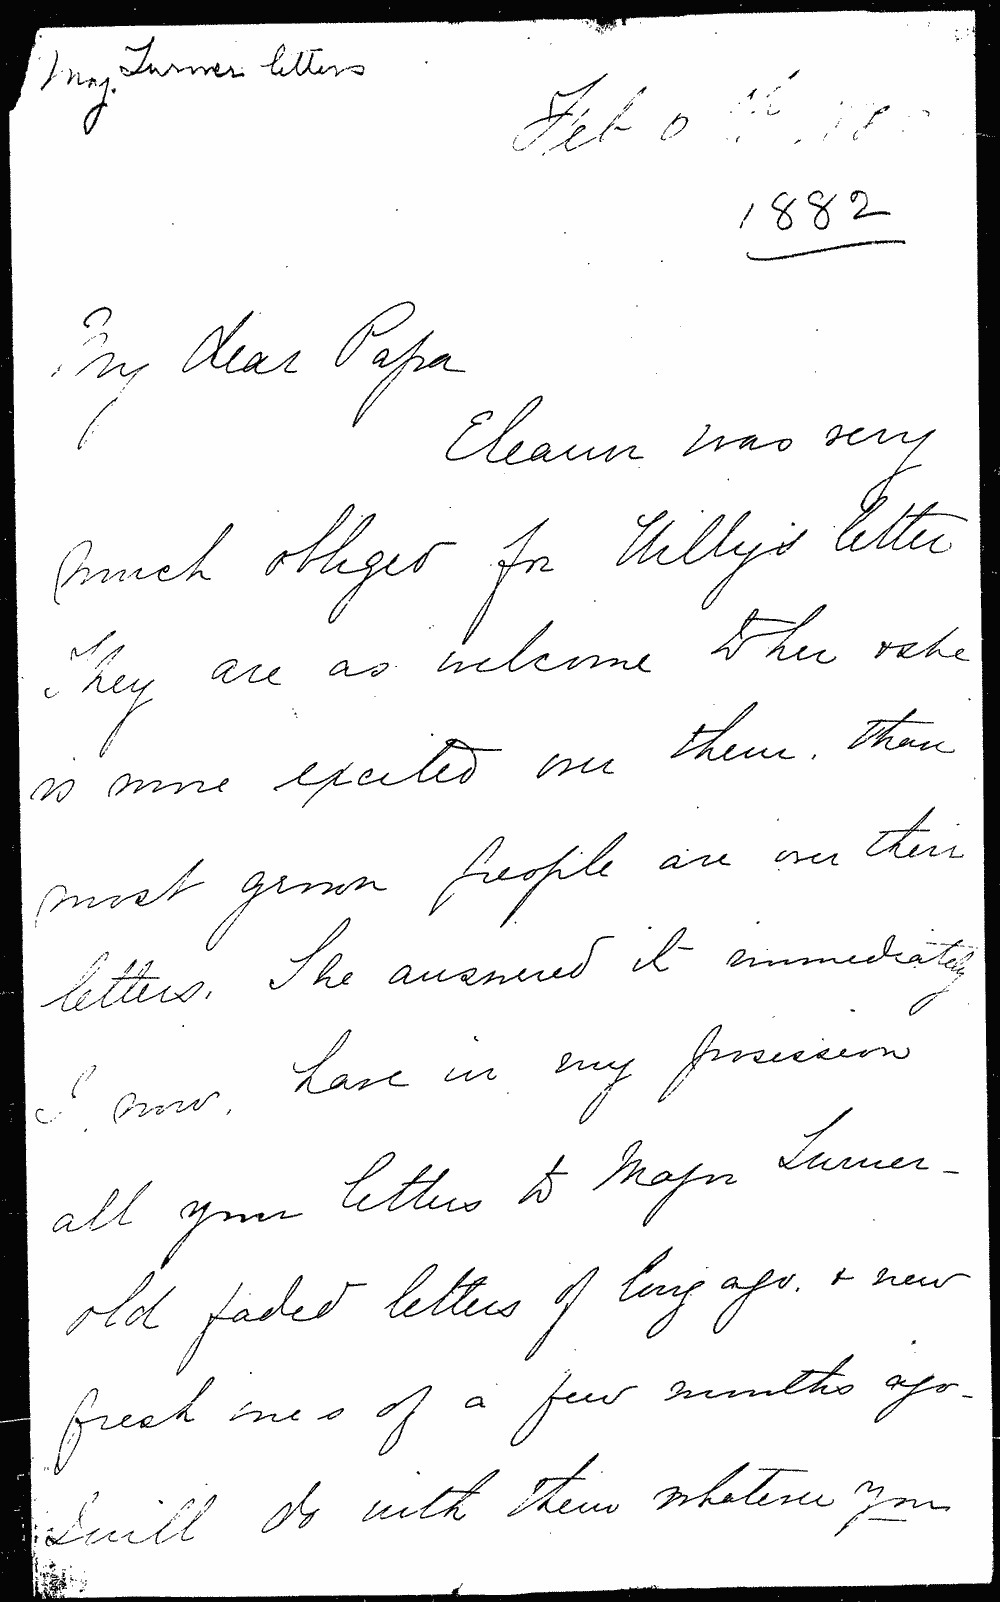 Maj. Turner letters
Feb th 18
1882
My dear Papa
Eleanor was very
much obliged for Willy's letter
They are as welcome to her & she
is more excited over them. than
most grown people are over their
letters. She answered it immediately
I now. have in my possession
all your letters to Major Turner -
old faded letters of long ago. & new
fresh ones of a few months ago -
I will do with them whatever you